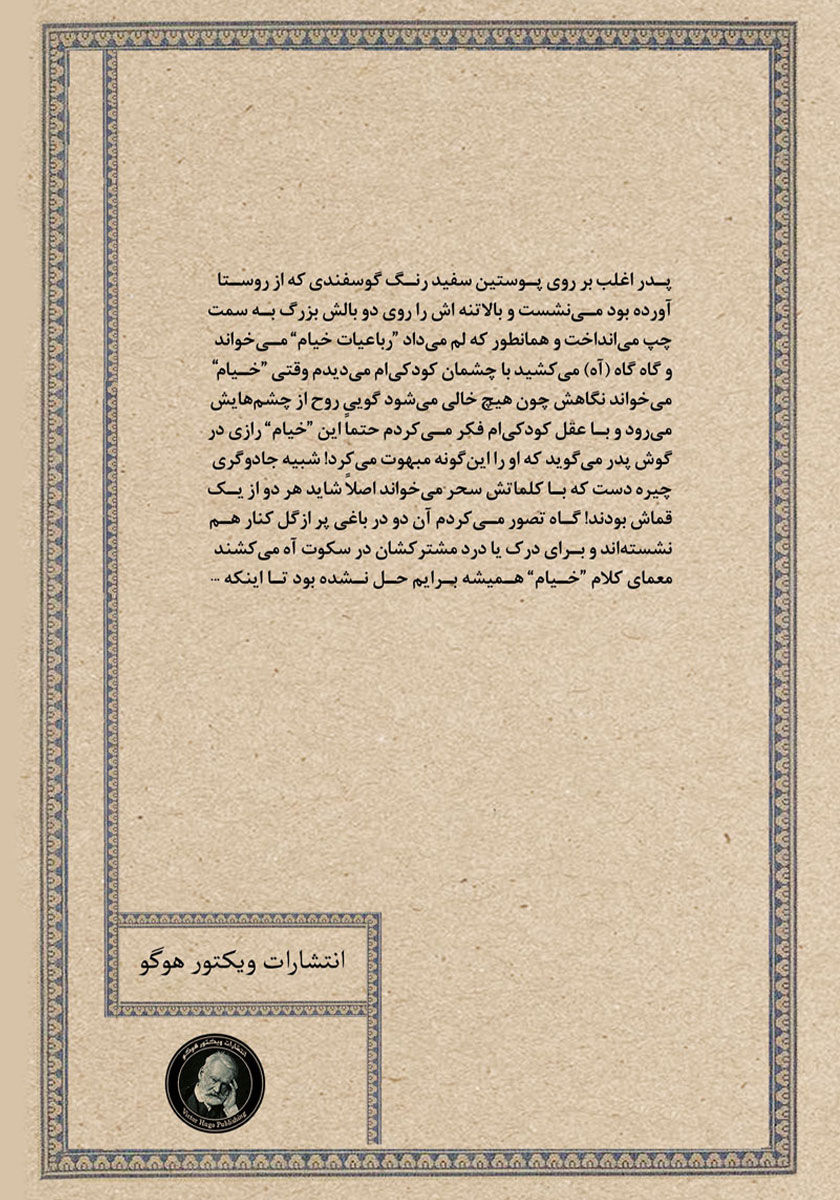 پدر اغلب بر روی پوستین سفید رنگ گوسفندی که از روستا
آورده بود می‌نشست و بالاتنه اش را روی دو بالش بزرگ به سمت
چپ می‌انداخت و همانطور که لم می‌داد ”رباعیات خیام“ می‌خواند
و گاه گاه (آه) می‌کشید با چشمان کودکی‌ام می‌دیدم وقتی ”خیام“
می‌خواند نگاهش چون هیچ خالی می‌شود گویی روح از چشم‌هایش
می‌رود و با عقل کودکی‌ام فکر می‌کردم حتماً این ”خیام“ رازی در
گوش پدر می‌گوید که او را این‌گونه مبهوت می‌کرد! شبیه جادوگری
چیره دست که با کلماتش سحر می‌خواند اصلاً شاید هر دو از یک
قماش بودند! گاه تصور می‌کردم آن دو در باغی پر از گل کنار هم
نشسته‌اند و برای درک یا درد مشترکشان در سکوت آه می‌کشند
معمای کلام ”خیام“ همیشه برایم حل نشده بود تا اینکه ...
انتشارات ویکتور هوگو
انتشارات ویکتور هوگو
Victor Hugo Publishing